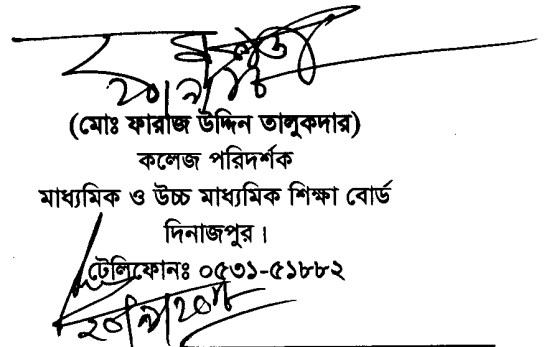 (মোঃ ফারাজ উদ্দিন তালুকদার)
কলেজ পরিদর্শক
মাধ্যমিক ও উচ্চ মাধ্যমিক শিক্ষা বোর্ড
দিনাজপুর।
টেলিফোনঃ ০৫৩১-৫১৮৮২